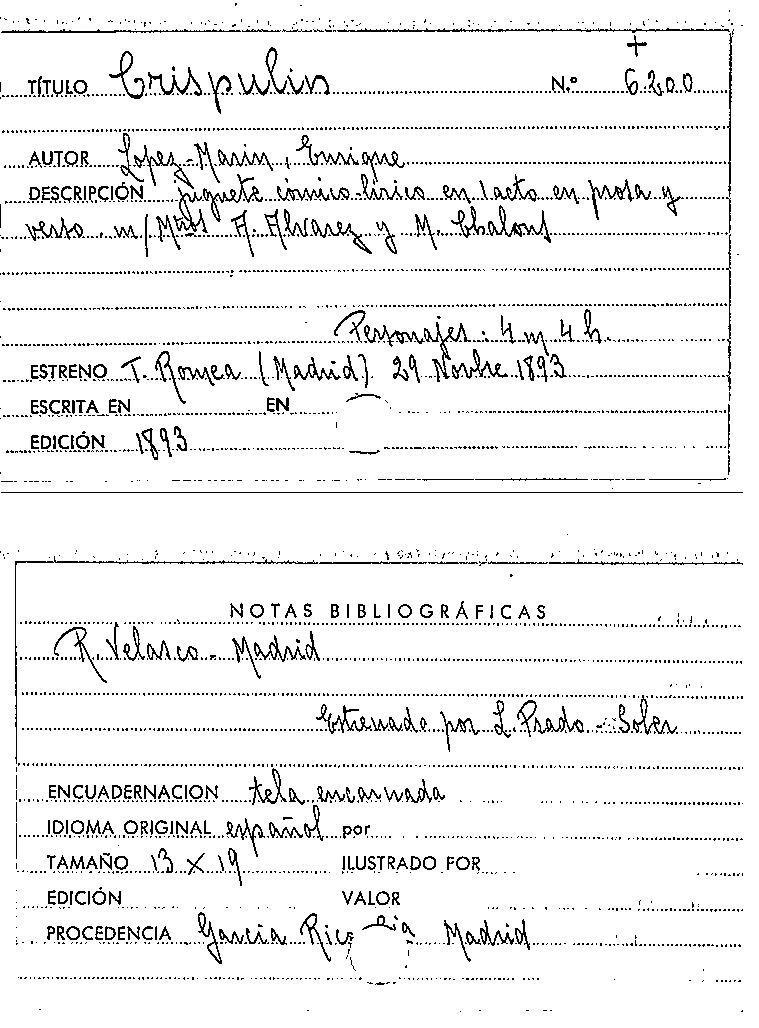 +
TÍTULO Crispulin N.º 6.200
AUTOR Lopez-Marin, Enrique
DESCRIPCIÓN juguete cómico-lírico en 1 acto en prosa y
verso. m/ Mtros A. Alvarez y M. Chalons
Personajes: 4 m 4 h.
ESTRENO T. Romea (Madrid) 29 Novbre 1893
ESCRITA EN EN
EDICIÓN 1893
NOTAS BIBLIOGRÁFICAS
R. Velasco - Madrid
Estrenada por L. Prado - Soler
ENCUADERNACION tela encarnada
IDIOMA ORIGINAL español por
TAMAÑO 13 X 19 ILUSTRADO FOR
EDICIÓN VALOR
PROCEDENCIA Garcia Rico Madrid